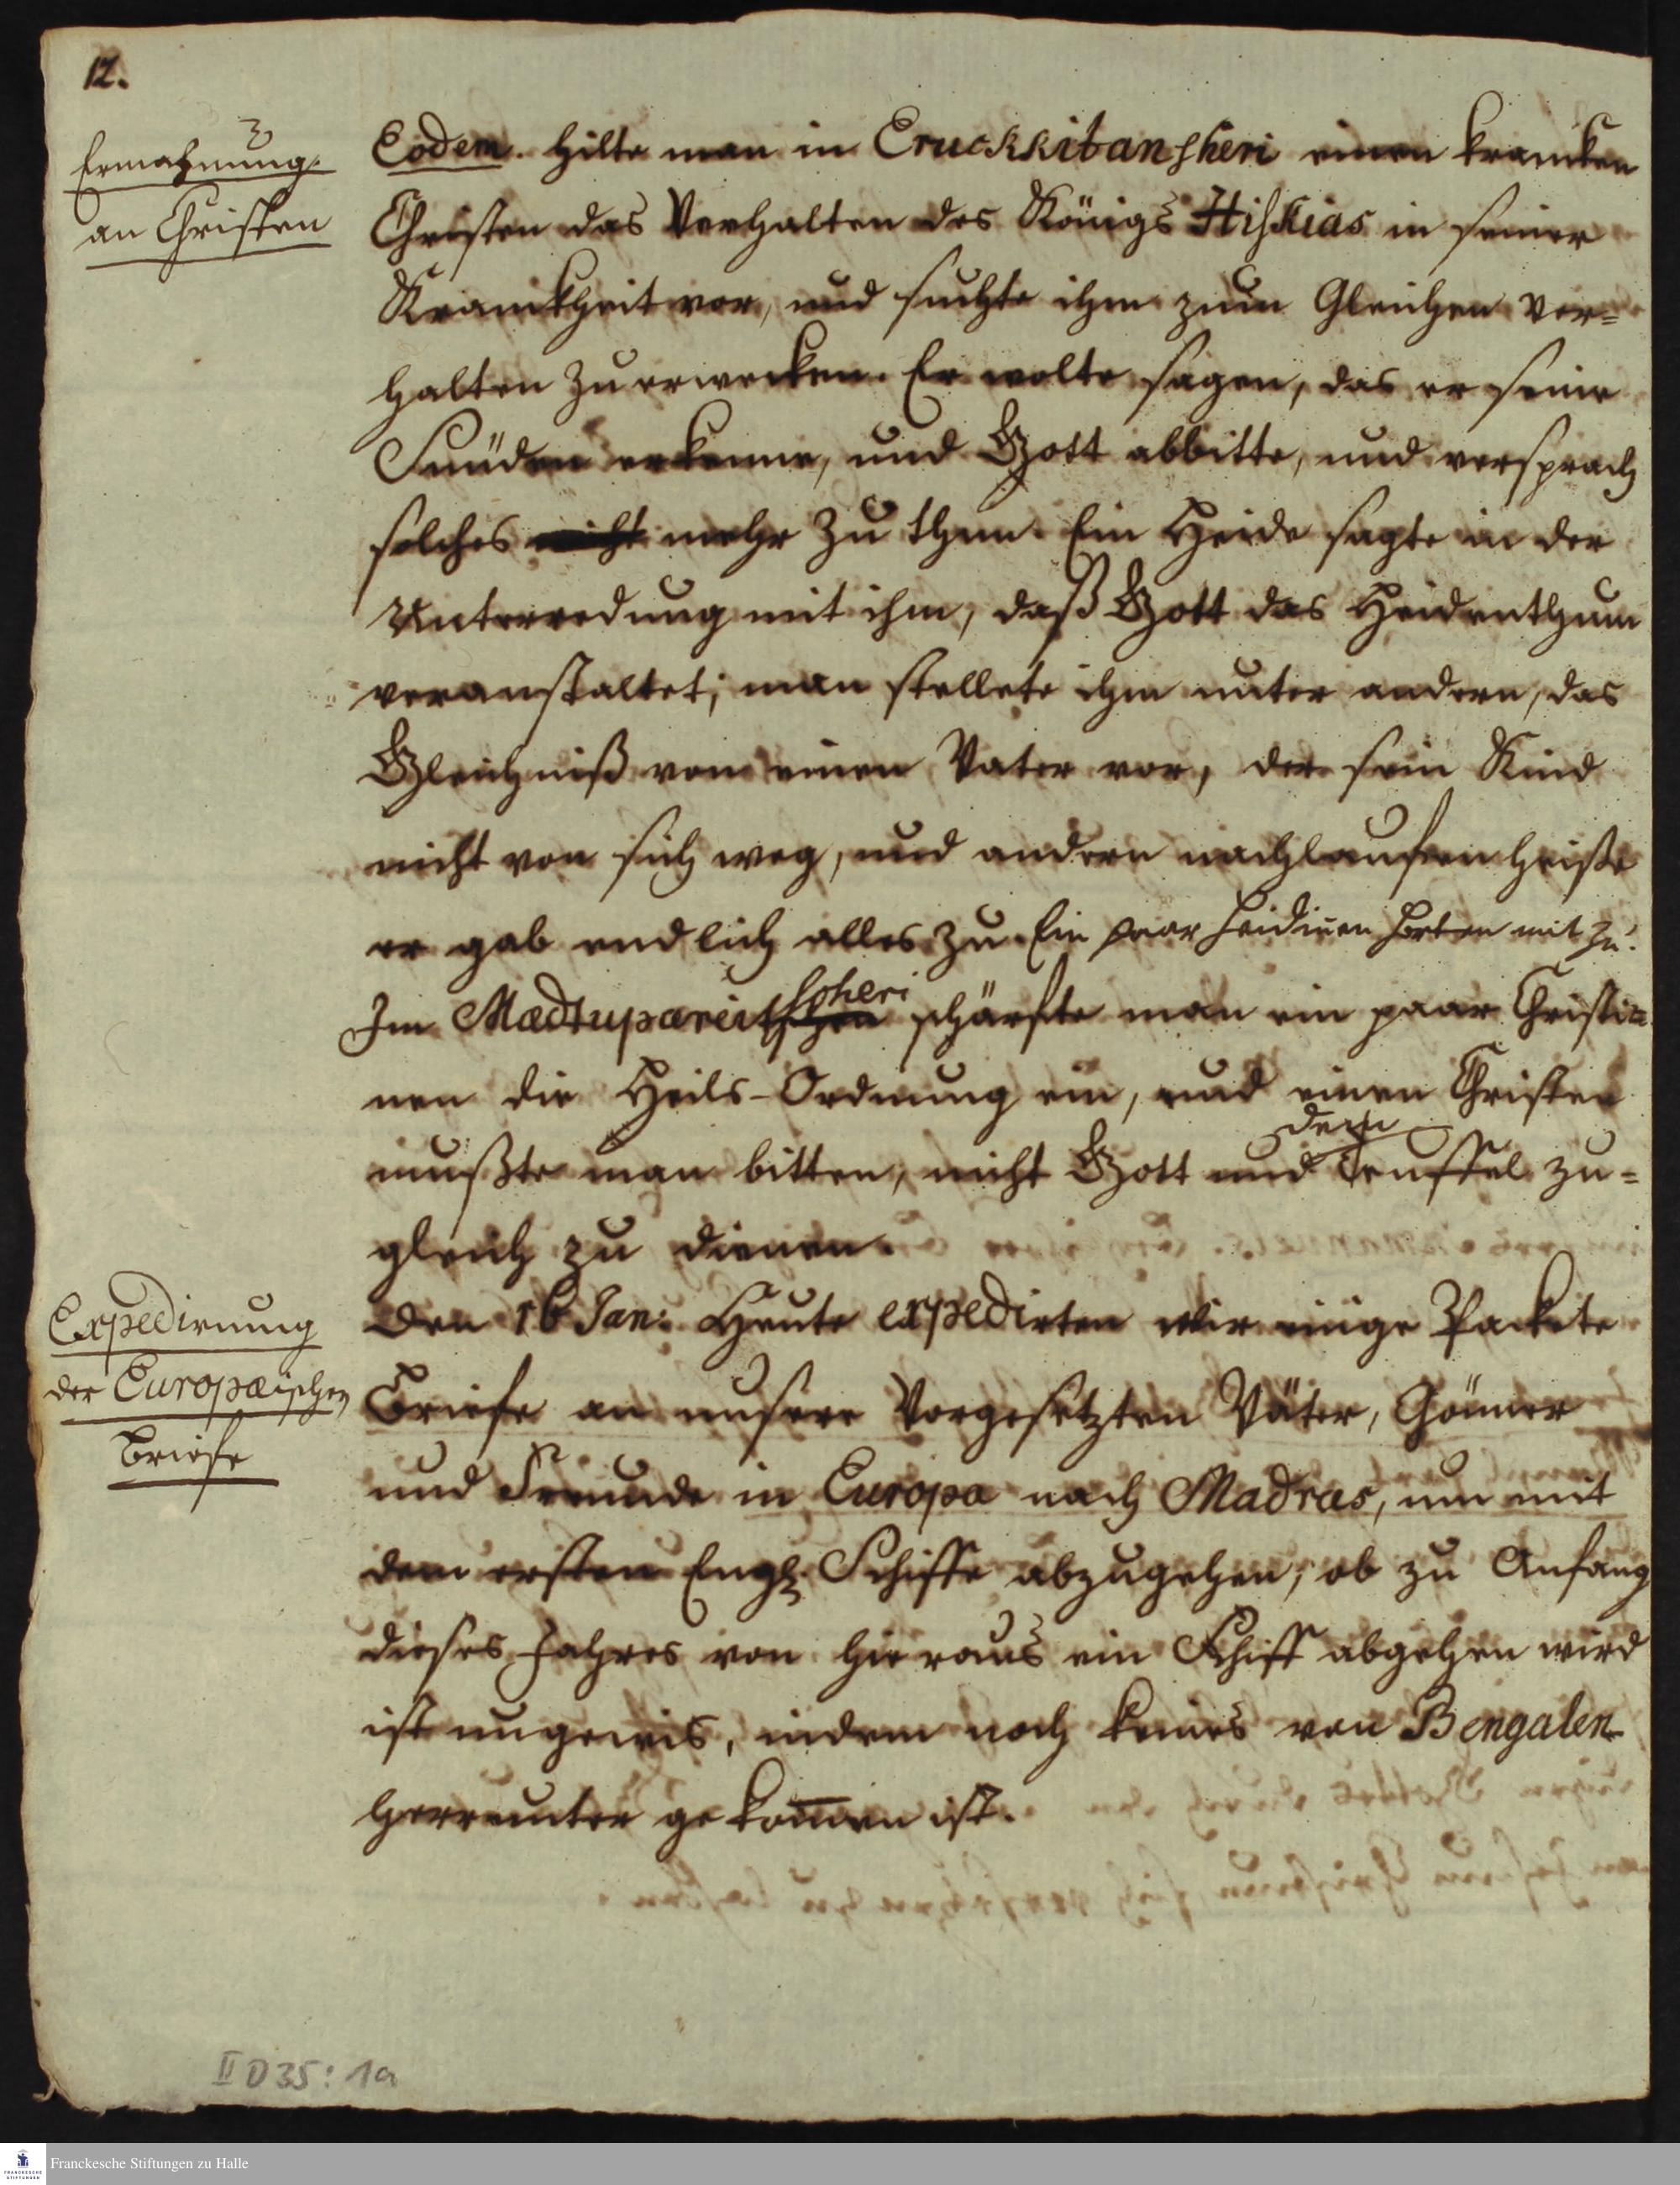 12.
Ermahnung.
an Christen
Eodem. hilte man in Eruckkitansheri einen krancken
Christen das Verhalten des Königs Hiskias in seiner
Kranckheit vor, und suchte ihm zum Gleichen Ver=
halten zu erwecken. Er wolte sagen, das er seine
Sünden erkenne, und Gott abbitte, und versprach
solches nicht mehr zu thun. Ein Heide sagte in der
Unterredung mit ihm, daß Gott das Heidenthum
veranstaltet; man stellete ihm unter andern, das
Gleichniß vom einen Vater vor, der sein Kind
nicht von sich weg, und andern nachlaufen heiße
er gab endlich alles zu. Ein paar Heidinen horten mit zu.
scheri
Im Mædtupareitschen schärfte man ein paar Christin=
nen die Heils-Ordnung ein, und einen Christen
dem
mußte man bitten, nicht Gott und Teuffel zu=
gleich zu dienen.
Expedirung
der Europæischen
Briefe
Den 16 Jan: Heute expedirten wir einige Packete
Briefe an unsere Vorgesetzten Väter, Gönner
und Freunde in Europa nach Madras, um mit
dem ersten Engl. Schiffe abzugehen; ob zu Anfang
dieses Jahres von hieraus ein Schiff abgehen wird
ist ungewis, indem noch keines von Bengalen
herrunter gekom̅en ist.
II D 35: 1a
Franckesche Stiftungen zu Halle